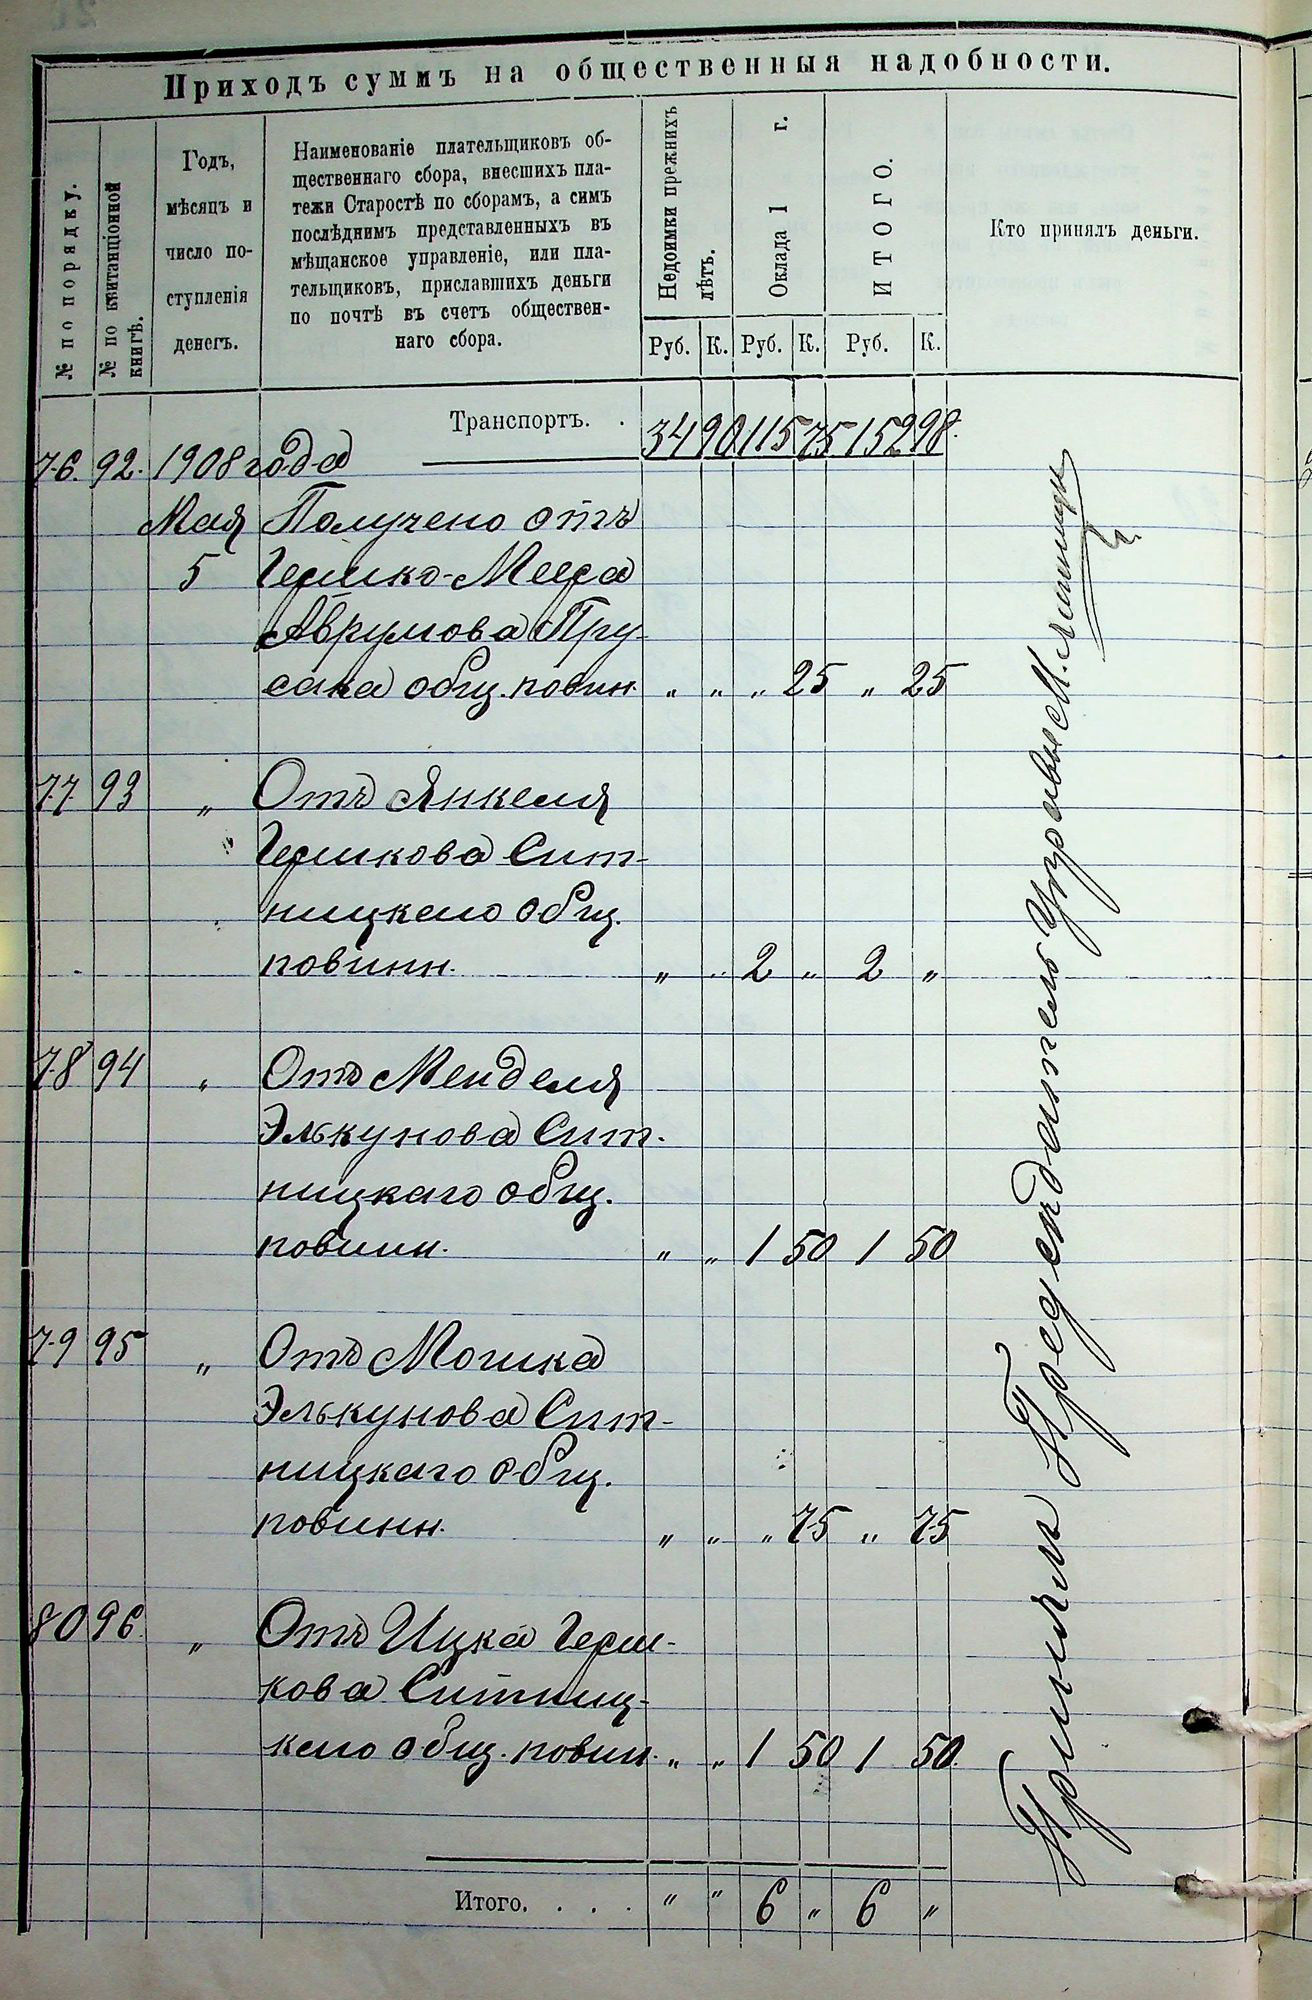 Приходъ суммъ на общественныя надобности.
№ по порядку.
№ по квитанціонной книгѣ.
Годъ,
мѣсяцъ и
число по-
ступленія
денегъ.
Наименованіе плательщиковъ об-
щественнаго сбора, внесшихъ пла-
тежи Старостѣ по сборамъ, а симъ
послѣднимъ представленныхъ въ
мѣщанское управленіе, или пла-
тельщиковъ, приславшихъ деньги
по почтѣ въ счетъ обществен-
наго сбора.
Недоимки прежнихъ
лѣтъ.
Оклада 1 г.
ИТОГО.
Кто принялъ деньги.
Руб. К. Руб. К. Руб. К.
Транспортъ. . 34 90 115 75 152 98.
76. 92. 1908 года
Мая Получено отъ
5 Гершко-Меера
Аврумова Пру-
сака общ. повин. „ „ „ 25 „ 25
77 93 „ Отъ Янкеля
Гершкова Сит-
ницкаго общ.
повинн. „ „ 2 „ 2 „
78 94 „ Отъ Менделя
Элькунова Сит-
ницкаго общ.
повинн. „ „ 1 50 1 50
79 95 „ Отъ Мошка
Элькунова Сит-
ницкаго общ.
повинн. „ „ „ 75 „ 75
80 96. „ Отъ Ицка Герш-
кова Ситниц-
каго общ. повин. „ „ 1 50 1 50.
Итого. . . . „ „ 6 „ 6 „
Принялъ Предсѣдатель Управы М.